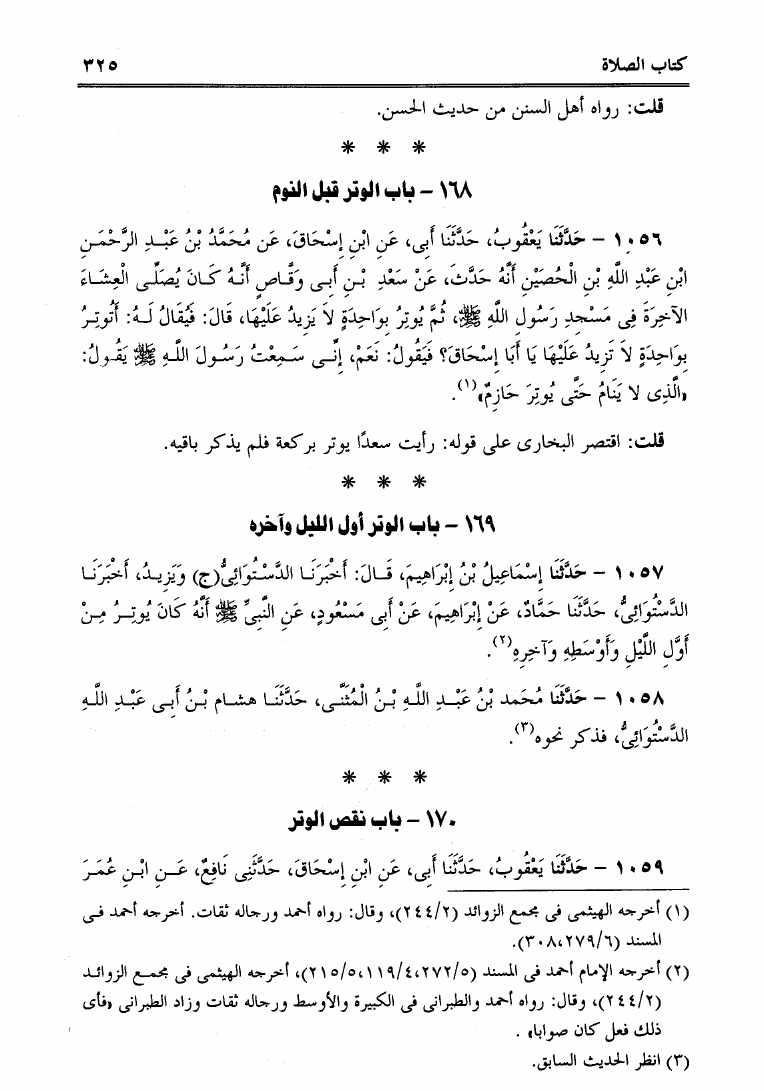 كتاب الصلاة ٣٢٥
قلت: رواه أهل السنن من حديث الحسن.
* * *
١٦٨ – باب الوتر قبل النوم
١٠٥٦ – حَدَّثَنَا يَعْقُوبُ، حَدَّثَنَا أَبِى، عَنِ ابْنِ إِسْحَاقَ، عَن مُحَمَّدُ بْنُ عَبْدِ الرَّحْمَنِ
ابْنِ عَبْدِ اللَّهِ بْنِ الْحُصَيْنِ أَنَّهُ حَدَّثَ، عَنْ سَعْدِ بْنِ أَبِى وَقَّاصٍ أَنَّهُ كَانَ يُصَلِّى الْعِشَاءَ
الآخِرَةَ فِى مَسْجِدِ رَسُولِ اللَّهِ ﷺ، ثُمَّ يُوتِرُ بِوَاحِدَةٍ لاَ يَزِيدُ عَلَيْهَا، قَالَ: فَيُقَالُ لَهُ: أَتُوتِرُ
بِوَاحِدَةٍ لاَ تَزِيدُ عَلَيْهَا يَا أَبَا إِسْحَاقَ؟ فَيَقُولُ: نَعَمْ، إِنِّى سَمِعْتُ رَسُولَ اللَّهِ ﷺ يَقُولُ:
«الَّذِى لا يَنَامُ حَتَّى يُوتِرَ حَازِمٌ»(١).
قلت: اقتصر البخارى على قوله: رأيت سعدًا يوتر بركعة فلم يذكر باقيه.
* * *
١٦٩ – باب الوتر أول الليل وآخره
١٠٥٧ – حَدَّثَنَا إِسْمَاعِيلُ بْنُ إِبْرَاهِيمَ، قَالَ: أَخْبَرَنَا الدَّسْتُوَائِىُّ(ح) وَيَزِيدُ، أَخْبَرَنَا
الدَّسْتُوَائِىُّ، حَدَّثَنَا حَمَّادٌ، عَنْ إِبْرَاهِيمَ، عَنْ أَبِى مَسْعُودٍ، عَنِ النَّبِىِّ ﷺ أَنَّهُ كَانَ يُوتِرُ مِنْ
أَوَّلِ اللَّيْلِ وَأَوْسَطِهِ وَآخِرِهِ(٢).
١٠٥٨ – حَدَّثَنَا مُحَمد بْنُ عَبْدِ اللَّهِ بْنُ الْمُثَنَّى، حَدَّثَنَا هشام بْنُ أَبِى عَبْدِ اللَّهِ
الدَّسْتُوَائِىُّ، فذكر نحوه(٣).
* * *
١٧٠ – باب نقص الوتر
١٠٥٩ – حَدَّثَنَا يَعْقُوبُ، حَدَّثَنَا أَبِى، عَنِ ابْنِ إِسْحَاقَ، حَدَّثَنِى نَافِعٌ، عَنِ ابْنِ عُمَرَ
(١) أخرجه الهيثمى فى مجمع الزوائد (٢٤٤/٢)، وقال: رواه أحمد ورجاله ثقات. أخرجه أحمد فى
المسند (٣٠٨،٢٧٩/٦).
(٢) أخرجه الإمام أحمد فى المسند (٢١٥/٥،١١٩/٤،٢٧٢/٥)، أخرجه الهيثمى فى مجمع الزوائد
(٢٤٤/٢)، وقال: رواه أحمد والطبرانى فى الكبيرة والأوسط ورجاله ثقات وزاد الطبرانى «فأى
ذلك فعل كان صوابا» .
(٣) انظر الحديث السابق.